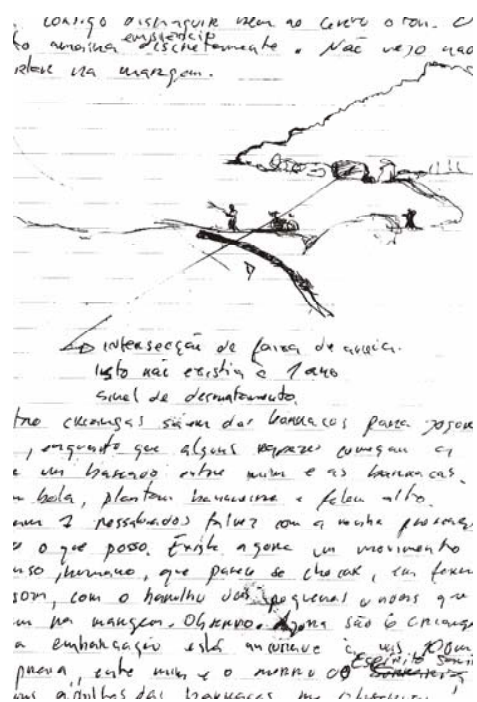 consigo distinguir nem ao certo o tom. O
to amaina discretamente. Não vejo nad
na margem.
intersecção de faixa de areia.
Isto não existia a 1 ano
sinal de desmatamento.
tro crianças saem dos barracos para jogar
, enquanto que alguns rapazes começam a
um baseado entre mim e as barracas.
bola, plantam bananeira e falam alto.
2 ressabiados talvez com a minha presença
o que posso. Existe agora um movimento
nso, humano, que parece se chocar, em
som, com o barulho das pequenas ondas que
m na margem. Observo. Agora são 6 crianças
a embarcação está a uns 100m
entre mim e o morro do Espírito Santo
adultos das barracas me